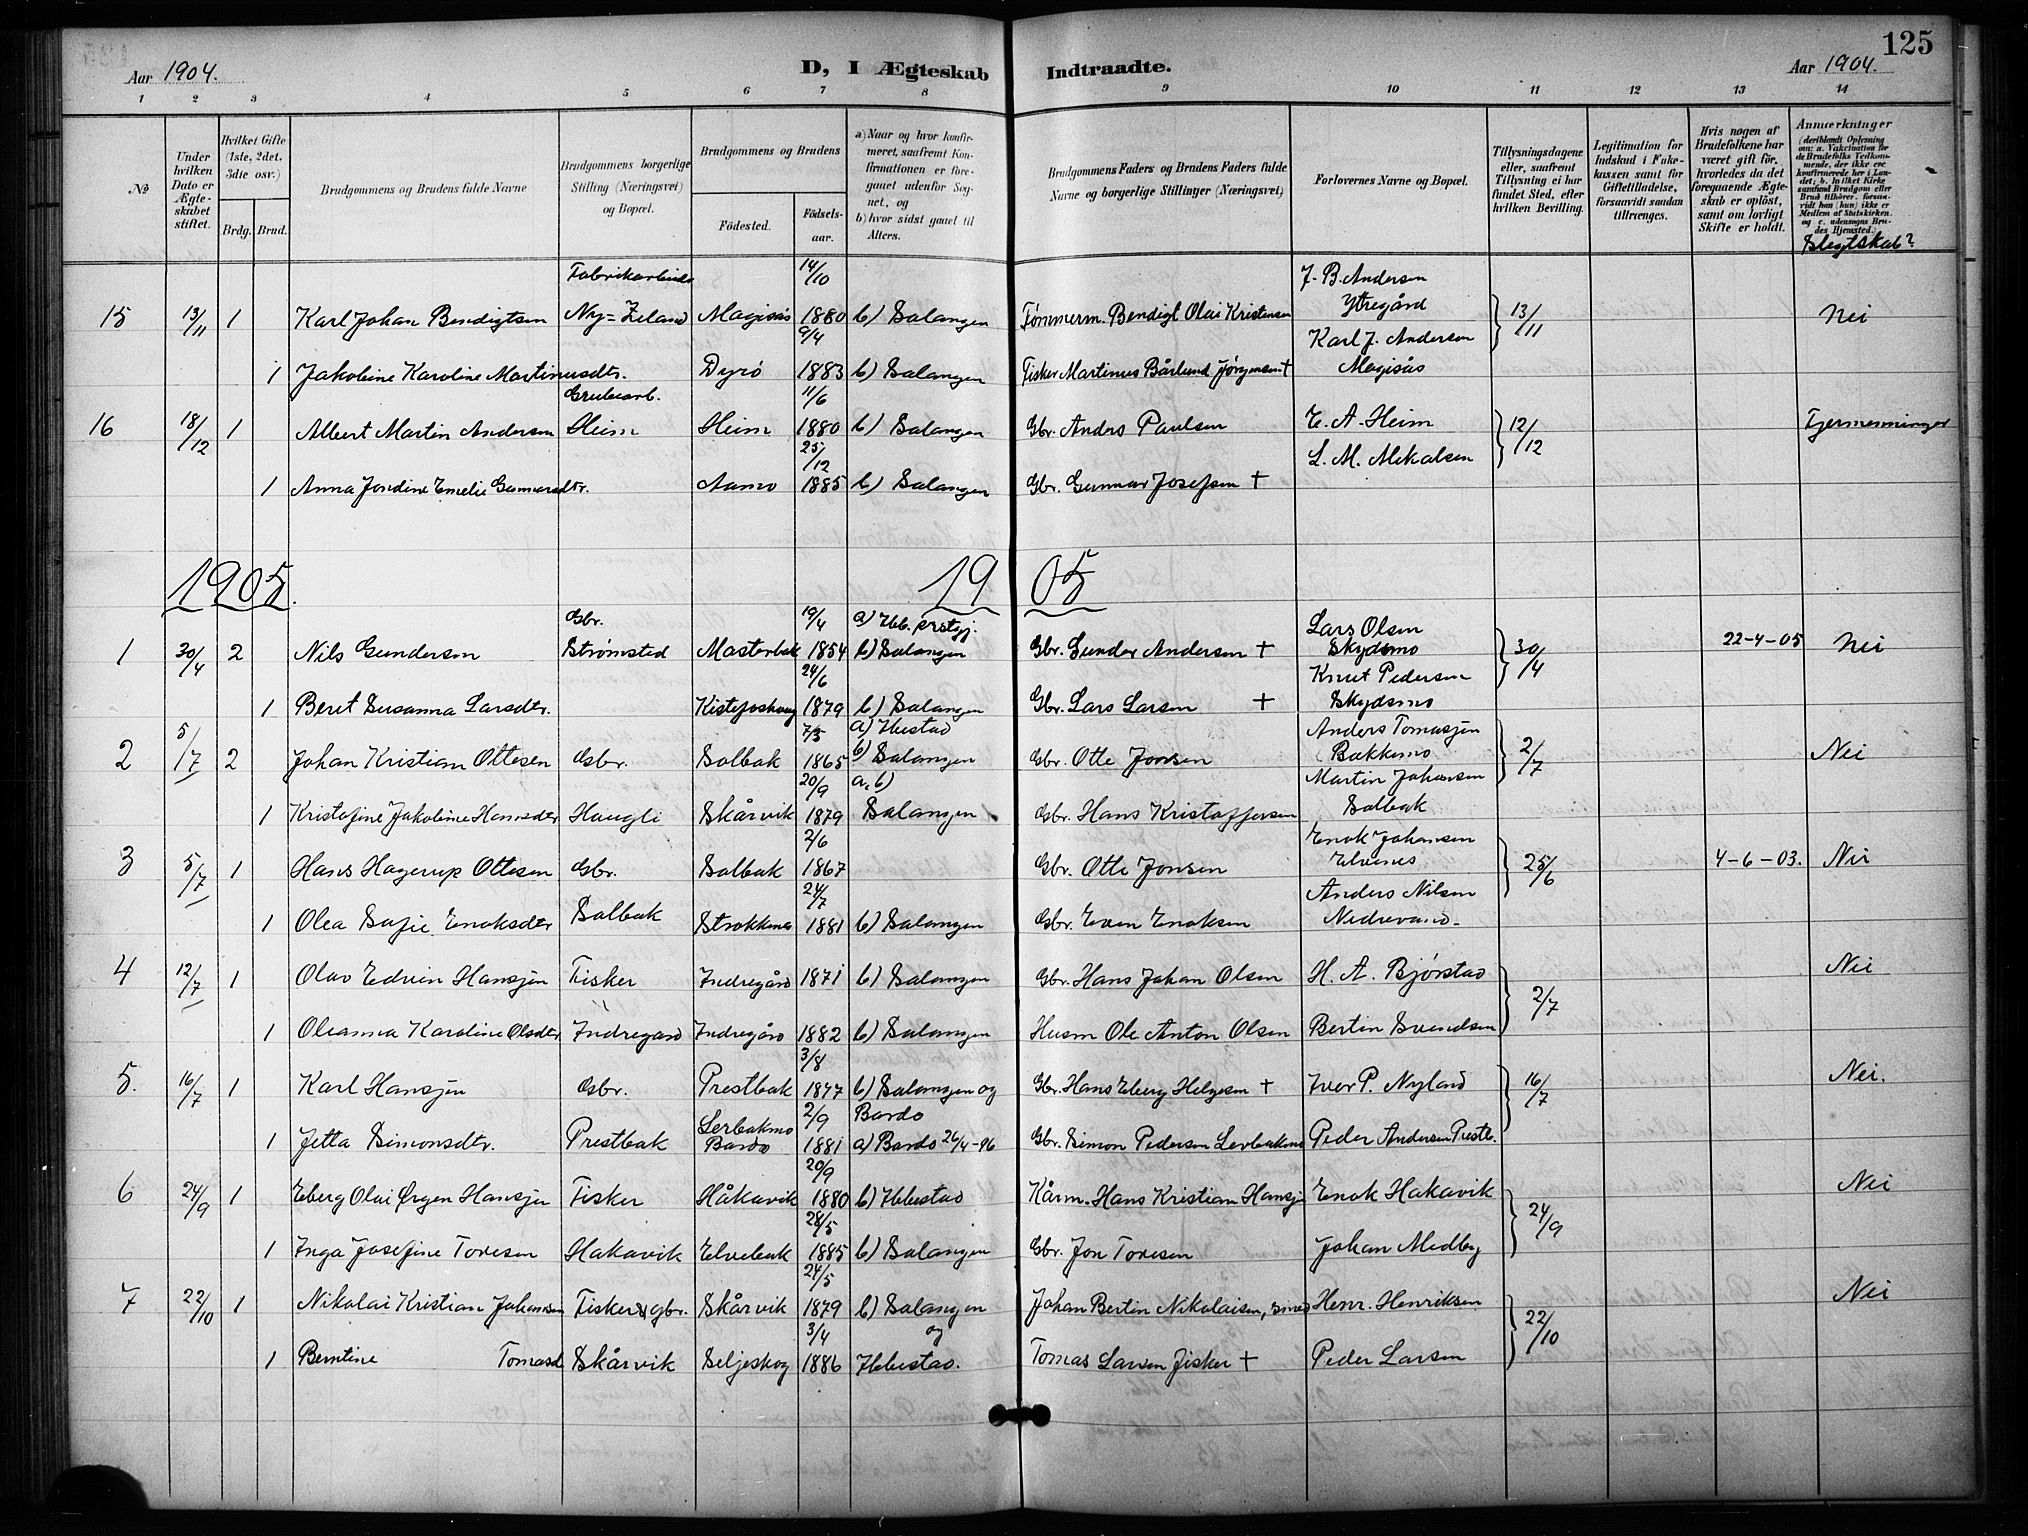 125
Aar 1904.
D, I Ægteskab Indtraadte.
Aar 1904.
1 2 3 4 5 6 7 8 9 10 11 12 13 14
No
Under hvilken Dato er Ægteskabet stiftet.
Hvilket Gifte (1ste, 2det, 3die osv.)
Brdg. Brud.
Brudgommens og Brudens fulde Navne
Brudgommens borgerlige Stilling (Næringsvei) og Bopæl.
Brudgommens og Brudens
Fødested.
Fødselsaar.
a) Naar og hvor konfirmeret, saafremt Konfirmationen er foregaaet udenfor Sognet, og
b) hvor sidst gaaet til Alters.
Brudgommens Faders og Brudens Faders fulde Navne og borgerlige Stillinger (Næringsvei)
Forlovernes Navne og Bopæl.
Tillysningsdagene eller, saafremt Tillysning ei har fundet Sted, efter hvilken Bevilling.
Legitimation for Indskud i Enkekassen samt for Giftetilladelse, forsaavidt saadan tiltrænges.
Hvis nogen af Brudefolkene har været gift før, hvorledes da det foregaaende Ægteskab er opløst, samt om lovligt Skifte er holdt.
Anmærkninger
Slegtskab?
Fabrikarbeider 14/10 J. B. Andersen
15 13/11 1 Karl Johan Bendigtsen Ny-Zeland Magisås 1880 b) Salangen Tømmerm. Bendigt Olai Kristensen Ytregård 13/11 Nei
9/4 Karl J. Andersen
1 Jakobine Karoline Martinusdtr. Dyrö 1883 b) Salangen Fisker Martinus Bårlund Jørgensen + Magisås
Grubearb. 11/6
16 18/12 1 Albert Martin Andersen Heim Heim 1880 b) Salangen Gbr. Anders Paulsen E. A. Heim 12/12 Tjermenninger
25/12 L. M. Mikalsen
1 Anna Jondine Emelie Gunnarsdtr. Aamo 1885 b) Salangen Gbr. Gunnar Josefsen +
1905. 1905
Gbr. 19/4 a) Ibb. prstgj. Lars Olsen
1 30/4 2 Nils Gundersen Strømsted Masterbak 1854 b) Salangen Gbr. Gunder Andersen + Skydsmo 30/4 22-4-05 Nei
24/6 Knut Pedersen
1 Beret Susanna Larsdtr. Kistefoshaug 1879 b) Salangen Gbr. Lars Larsen + Skydsmo
7/5 a) Ibestad Anders Tomasjen
2 5/7 2 Johan Kristian Ottesen Gbr. Solbak 1865 b) Salangen Gbr. Otte Jonsen Bakkemo 2/7 Nei
20/9 a, b) Martin Johansen
1 Kristofine Jakobine Hansdtr Haugli Skårvik 1879 Salangen Gbr. Hans Kristoffersen Solbak
2/6 Enok Johansen
3 5/7 1 Hans Hagerup Ottesen Gbr. Solbak 1867 Gbr. Otte Jonsen Elvenes 25/6 4-6-03. Nei
24/7 Anders Nilsen
1 Olea Sofie Enoksdtr Solbak Strokkenes 1881 b) Salangen Gbr. Even Enoksen Nedrevand
4 12/7 1 Olav Edvin Hansjen Fisker Indregård 1871 b) Salangen Gbr. Hans Johan Olsen H. A. Bjørstad 2/7 Nei
1 Oleanna Karoline Olsdtr Indregard Indregård 1882 b) Salangen Husm Ole Anton Olsen Bertin Svendsen
3/8
5. 16/7 1 Karl Hansjen Gbr. Prestbak 1877 b) Salangen og Gbr. Hans Eberg Helgesen + Iver P. Nyland 16/7 Nei.
Lerbakmo 2/9 Bardo
1 Jetta Simonsdtr. Prestbak Bardo 1881 a) Bardo 26/4-96 Gbr. Simon Pedersen Lerbakmo Peder Andersen Prestb.
20/9
6 24/9 1 Eberg Olai Ørgen Hansjen Fisker Håkavik 1880 b) Ibbestad Kårm. Hans Kristian Hansjen Enok Hakavik 24/9 Nei
28/5
1 Inga Josefine Toresen Hakavik Elvebak 1885 b) Salangen Gbr. Jon Toresen Johan Medby
24/5
7 22/10 1 Nikolai Kristian Johansen Fisker & gbr. Skårvik 1879 b) Salangen Johan Bertin Nikolaisen, Henr. Henriksen 22/10 Nei
3/4 og
1 Berntine Tomasd Skårvik Seljeskog 1886 Ibbestad. Tomas Larsen fisker + Peder Larsen